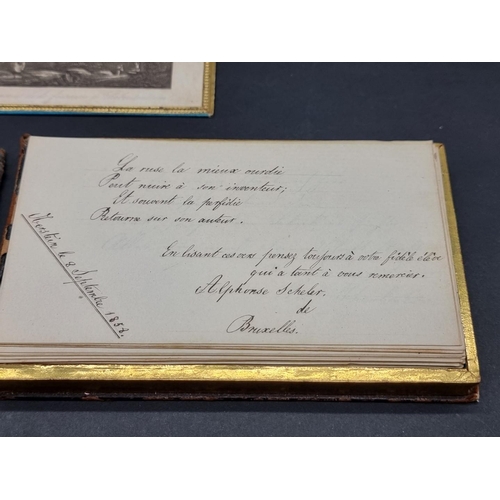 La ruse la mieux ourdie
Peut nuire à son inventeur;
Et souvent la perfidie
Retourne sur son auteur.
En lisant ces vers pensez toujours à votre fidèle élève
qui a tant à vous remercier.
Alphonse Scheler.
de
Bruxelles.
le 2 Septembre 1858.